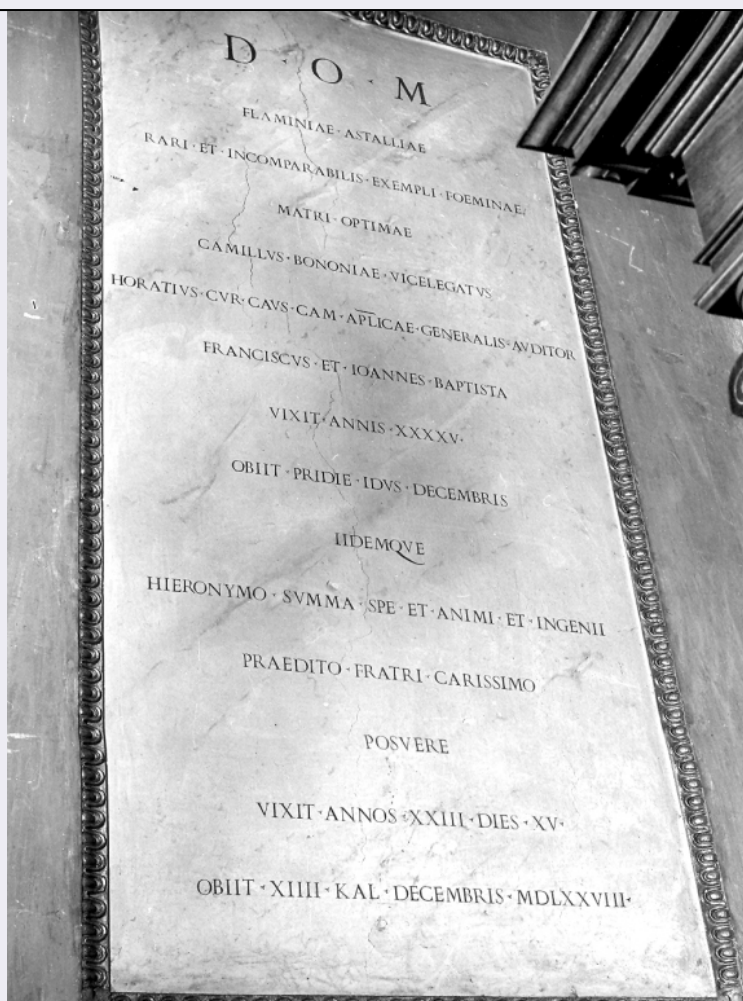 D · O · M
FLAMINIAE · ASTALLIAE
RARI · ET · INCOMPARABILIS · EXEMPLI · FOEMINAE
MATRI · OPTIMAE
CAMILLVS · BONONIAE · VICELEGATVS
HORATIVS · CVR · CAVS · CAM · APLICAE · GENERALIS · AVDITOR
FRANCISCVS · ET · IOANNES · BAPTISTA
VIXIT · ANNIS · XXXXV ·
OBIIT · PRIDIE · IDVS · DECEMBRIS
IIDEMQVE
HIERONYMO · SVMMA · SPE · ET · ANIMI · ET · INGENII
PRAEDITO · FRATRI · CARISSIMO
POSVERE
VIXIT · ANNOS · XXIII · DIES · XV ·
OBIIT · XIIII · KAL · DECEMBRIS · MDLXXVIII ·